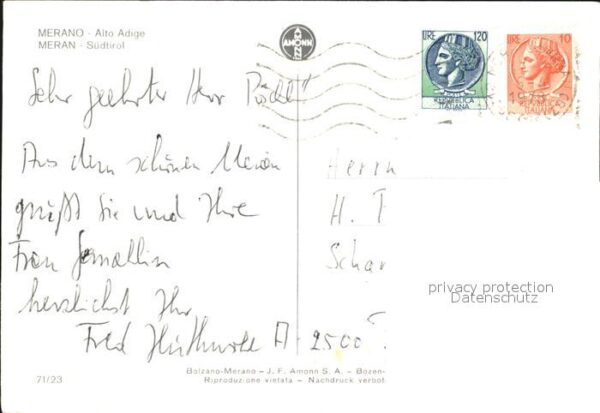 MERANO - Alto Adige
MERAN - Südtirol
AMONN
LIRE 120
REPUBBLICA
ITALIANA
LIRE 10
REPUBBLICA
ITALIANA
Sehr geehrter Herr
Aus dem schönen Meran
grüßt Sie und Ihre
Frau Gemahlin
herzlichst Ihr
Fred
Herrn
H.
A-2500
privacy protection
Datenschutz
Bolzano-Merano - J. F. Amonn S. A. - Bozen-
Riproduzione vietata - Nachdruck verbot
71/23